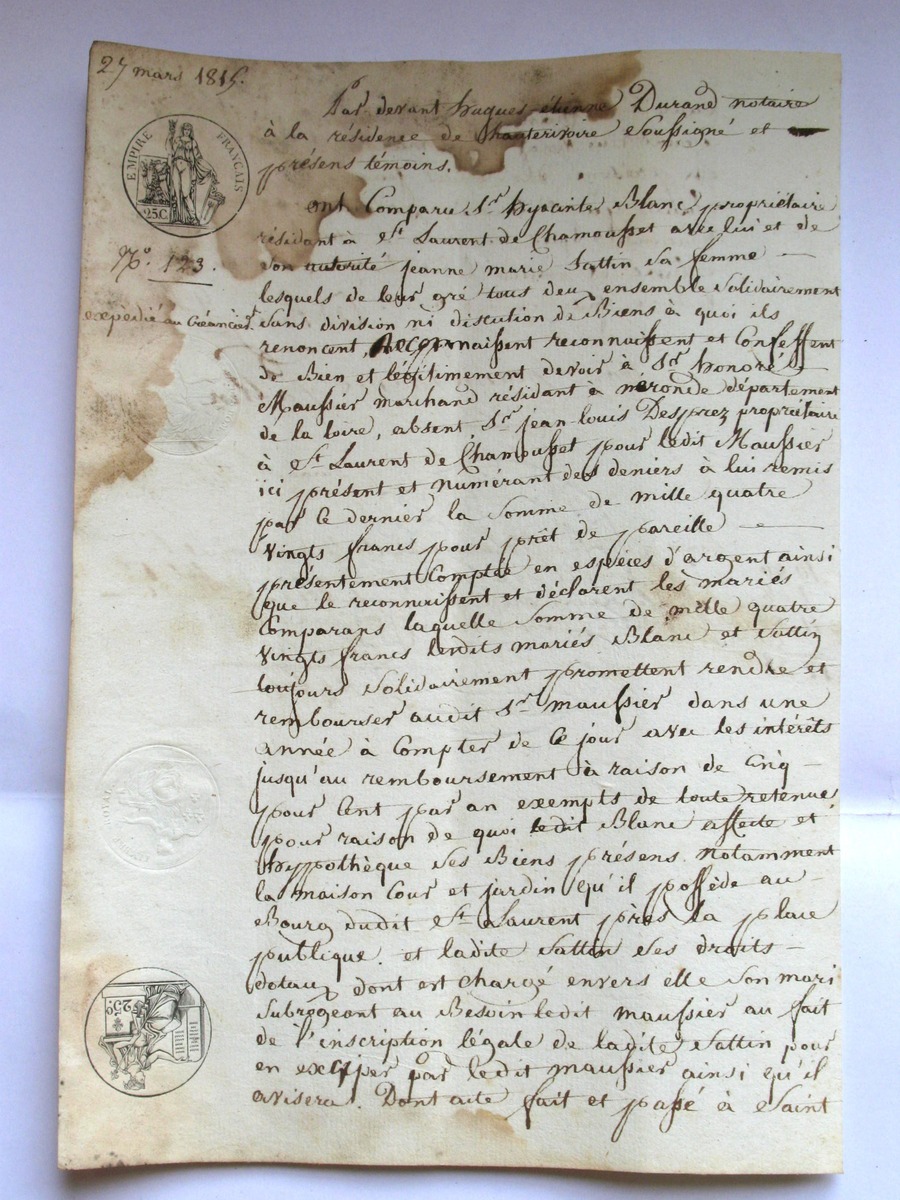 27 mars 1815.
Par devant hugues étienne Durand notaire
à la résidence de hauterivoire Soussigné et
présens témoins.
EMPIRE FRANÇAIS
25C.
ont Comparu Sr. hyacinte Blanc propriétaire
résidant à St. Laurent de Chamousset avec lui et de
Son autorité jeanne marie Sattin Sa femme
No. 123.
lesquels de leur gré tous deux ensemble Solidairement
expédié au Créancier
Sans division ni discution de Biens à quoi ils
renoncent, reconnaissent et Confessent
de Bien et légitimement devoir à Sr. honoré
Maussier marchand résidant à néronde département
de la loire, absent, Sr. jean-louis Desprez propriétaire
à St. Laurent de Chamousset pour ledit Maussier
ici présent et numérant des deniers à lui remis
par ce dernier la Somme de mille quatre
vingts francs pour prêt de pareille
présentement Comptée en espèces d'argent ainsi
que le reconnaissent et déclarent les mariés
Comparans laquelle Somme de mille quatre
vingts francs lesdits mariés Blanc et Sattin
toujours Solidairement promettent rendre et
rembourser audit Sr. maussier dans une
année à Compter de Ce jour avec les intérêts
jusqu'au remboursement à raison de Cinq
pour Cent par an exempts de toute retenue
pour raison de quoi ledit Blanc affecte et
hyppothèque Ses Biens présens notamment
la maison Cour et jardin qu'il possède au
Bourg dudit St. Laurent près la place
publique. et ladite Sattin Ses droits
dotaux dont est chargé envers elle Son mari
Subrogeant au Besoin ledit maussier au fait
de l'inscription légale de ladite Sattin pour
25C.
en exciper par ledit maussier ainsi qu'il
avisera. Dont acte fait et passé à Saint